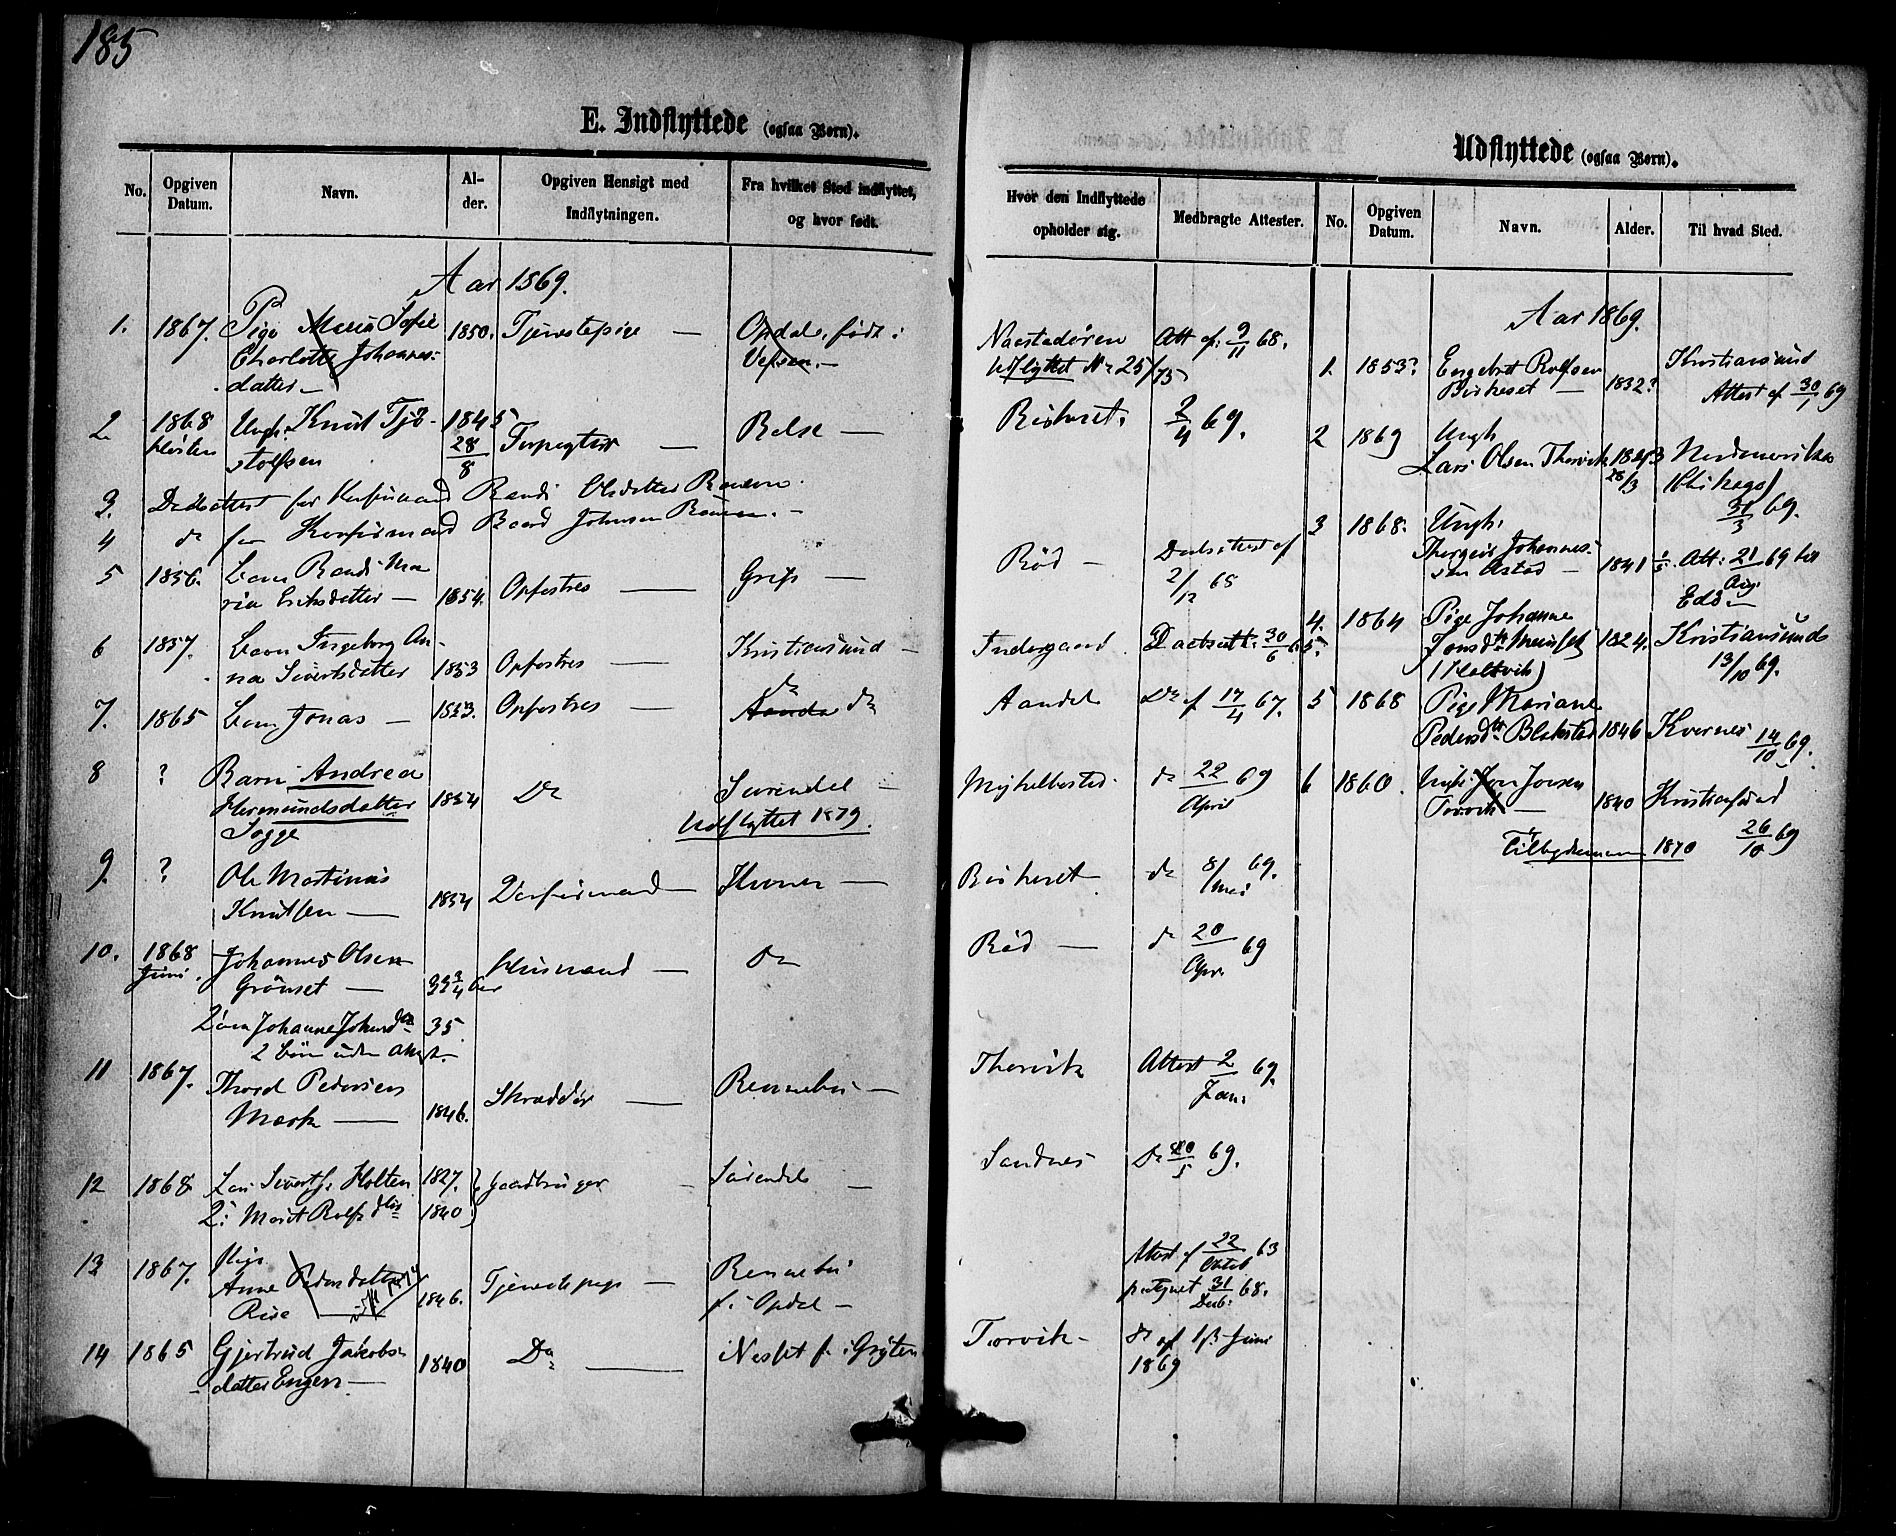 185
E. Indflyttede (ogsaa Børn).
No. Opgiven Datum. Navn. Alder. Opgiven Hensigt med Indflytningen. Fra hvilket Sted indflyttet, og hvor født.
Aar 1869.
1. 1867. Pige Maria Sofie 1850. Tjenestepige — Opdal, født i
Charlotte Johannes- Vefsen. —
datter —
2 1868 Ungk. Knut Tjø- 1845 Forpagter — Bolsø —
Høsten stolfsen 28/8
3. Daabsattest for Konfirmand Randi Olsdatter
4 do for Konfirmand Baard Johnsen
5 1856. Barn Randi Ma- Grip —
ria Eriksdatter — 1854. Opfostres —
6 1857. Barn Ingeborg An- Kristiansund —
na Sivertsdatter 1853 Opfostres —
7. 1865 Barn Jonas — Opfostres — do
8 ? Barn Andrea Surendal —
Hermundsdatter 1854 Do Udflyttet 1879.
Sogge
9. ? Ole Martinus
Knutsen — 1854 Konfirmand —
10. 1868 Johannes Olsen Husmand — do
Juni. Grönset — 33 3/4
Johanne 35.
2 Börn uden attest. —
11 1867. Thord Pedersen Skrædder — Rennebu —
Mærk — 1846.
12 1868 Lars Siverts. Holten 1827. Gaardbruger — Surendal —
Marit Rolfsdter 1840
13 1867. Pige Rennebu
Anne Pedersdatter 1846. Tjenestepige — f. i Opdal —
Rise
14 1865 Gjertrud Jakobs- 1840 Do — Nesset f. i Gryten
datter Engen —
Udflyttede (ogsaa Børn).
Hvor den Indflyttede opholder sig. Medbragte Attester. No. Opgiven Datum. Navn. Alder. Til hvad Sted.
Aar 1869.
Naastadøren Att af: 9/11 68.
Udflyttet No 25/75
Birkeset. 2/4 69.
Röd — Daabsattest af
2/12 68
Indergaard. Daabsatt: 30/6 65.
Aandal Do af 17/4 67.
Myklebostad. do 22/April 69
Birkeset do 8/Mai 69.
Röd — do 20/Apr. 69
Thorvik Attest 2/Jan: 69.
Sandnes Do 20/5 69.
Attest af 22/Oktob 63
paategnet 31/Decb: 68.
Torvik — do af 13 Juni
1869
1. 1853? Engebret Rolfsen Kristiansund
Birkeset — 1832? Attest af 30/1 69
2 1869 Ungk.
Lars Olsen Thorvik 1843 Nordamerika
28/3 (Chikago)
31/3 69.
3 1868. Ungk.
Thorgeir Johannes-
sen — 1841 Att: 21/Aug. 69 til
Edö —
4. 1864 Pige Johanne
Jonsdtr 1824. Kristiansund
13/10 69.
5 1868 Pige Mariane
Pedersdtr Blakstad 1846 Kvernes 14/10 69.
6 1860. Ungk: Jon Jonsen
Torvik — 1840 Kristiansund
26/10 69
Tilbagekommen 1870